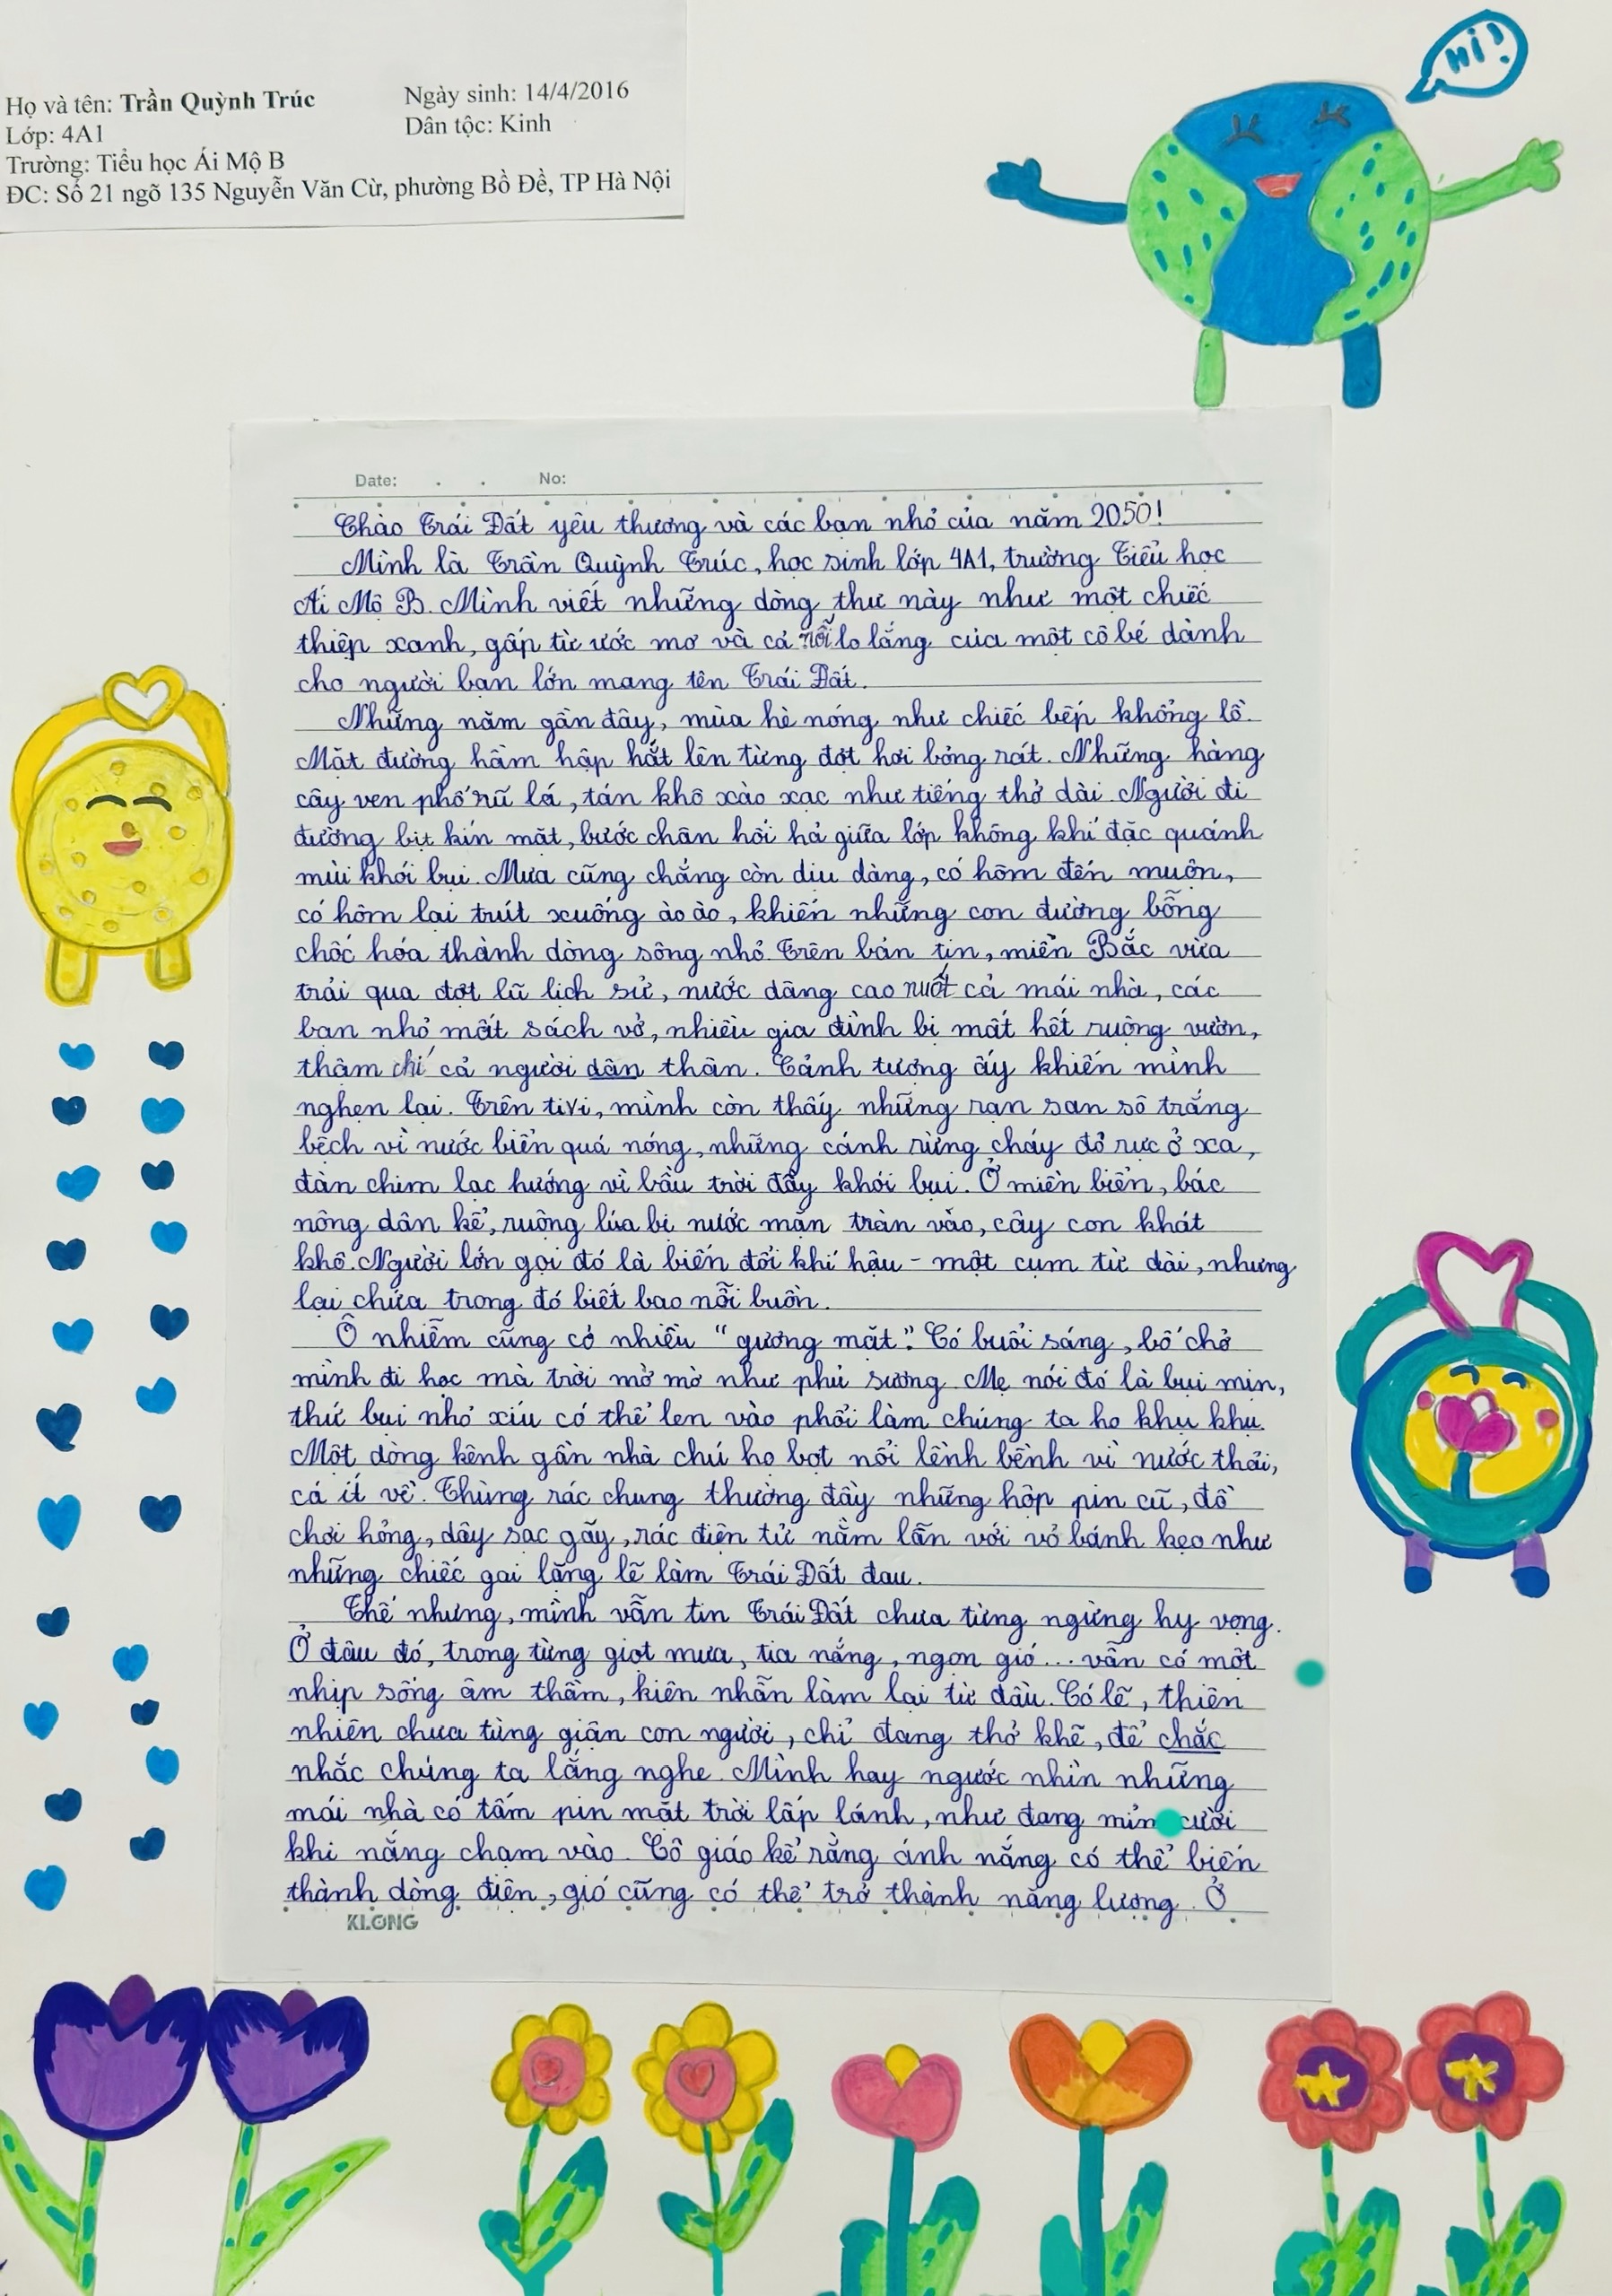 Họ và tên: Trần Quỳnh Trúc
Ngày sinh: 14/4/2016
Lớp: 4A1
Dân tộc: Kinh
Trường: Tiểu học Ái Mộ B
ĐC: Số 21 ngõ 135 Nguyễn Văn Cừ, phường Bồ Đề, TP Hà Nội
Hi!
Date: . . No:
Chào Trái Đất yêu thương và các bạn nhỏ của năm 2050!
Mình là Trần Quỳnh Trúc, học sinh lớp 4A1, trường Tiểu học
Ái Mộ B. Mình viết những dòng thư này như một chiếc
thiệp xanh, gấp từ ước mơ và cả nỗi lo lắng của một cô bé dành
cho người bạn lớn mang tên Trái Đất.
Những năm gần đây, mùa hè nóng như chiếc bếp khổng lồ.
Mặt đường hầm hập hắt lên từng đợt hơi bỏng rát. Những hàng
cây ven phố rũ lá, tán khô xào xạc như tiếng thở dài. Người đi
đường bịt kín mặt, bước chân hối hả giữa lớp không khí đặc quánh
mùi khói bụi. Mưa cũng chẳng còn dịu dàng, có hôm đến muộn,
có hôm lại trút xuống ào ào, khiến những con đường bỗng
chốc hóa thành dòng sông nhỏ. Trên bản tin, miền Bắc vừa
trải qua đợt lũ lịch sử, nước dâng cao nuốt cả mái nhà, các
bạn nhỏ mất sách vở, nhiều gia đình bị mất hết ruộng vườn,
thậm chí cả người dân thân. Cảnh tượng ấy khiến mình
nghẹn lại. Trên tivi, mình còn thấy những rạn san sô trắng
bệch vì nước biển quá nóng, những cánh rừng cháy đỏ rực ở xa,
đàn chim lạc hướng vì bầu trời đầy khói bụi. Ở miền biển, bác
nông dân kể, ruộng lúa bị nước mặn tràn vào, cây con khát
khô. Người lớn gọi đó là biến đổi khí hậu - một cụm từ dài, nhưng
lại chứa trong đó biết bao nỗi buồn.
Ô nhiễm cũng có nhiều "gương mặt". Có buổi sáng, bố chở
mình đi học mà trời mờ mờ như phủ sương. Mẹ nói đó là bụi mịn,
thứ bụi nhỏ xíu có thể len vào phổi làm chúng ta ho khụ khụ.
Một dòng kênh gần nhà chú họ bọt nổi lềnh bềnh vì nước thải,
cá ít về. Thùng rác chung thường đầy những hộp pin cũ, đồ
chơi hỏng, dây sạc gãy, rác điện tử nằm lẫn với vỏ bánh kẹo như
những chiếc gai lặng lẽ làm Trái Đất đau.
Thế nhưng, mình vẫn tin Trái Đất chưa từng ngừng hy vọng.
Ở đâu đó, trong từng giọt mưa, tia nắng, ngọn gió... vẫn có một
nhịp sống âm thầm, kiên nhẫn làm lại từ đầu. Có lẽ, thiên
nhiên chưa từng giận con người, chỉ đang thở khẽ, để chắc
nhắc chúng ta lắng nghe. Mình hay ngước nhìn những
mái nhà có tấm pin mặt trời lấp lánh, như đang mỉm cười
khi nắng chạm vào. Cô giáo kể rằng ánh nắng có thể biến
thành dòng điện, gió cũng có thể trở thành năng lượng. Ở
KLONG